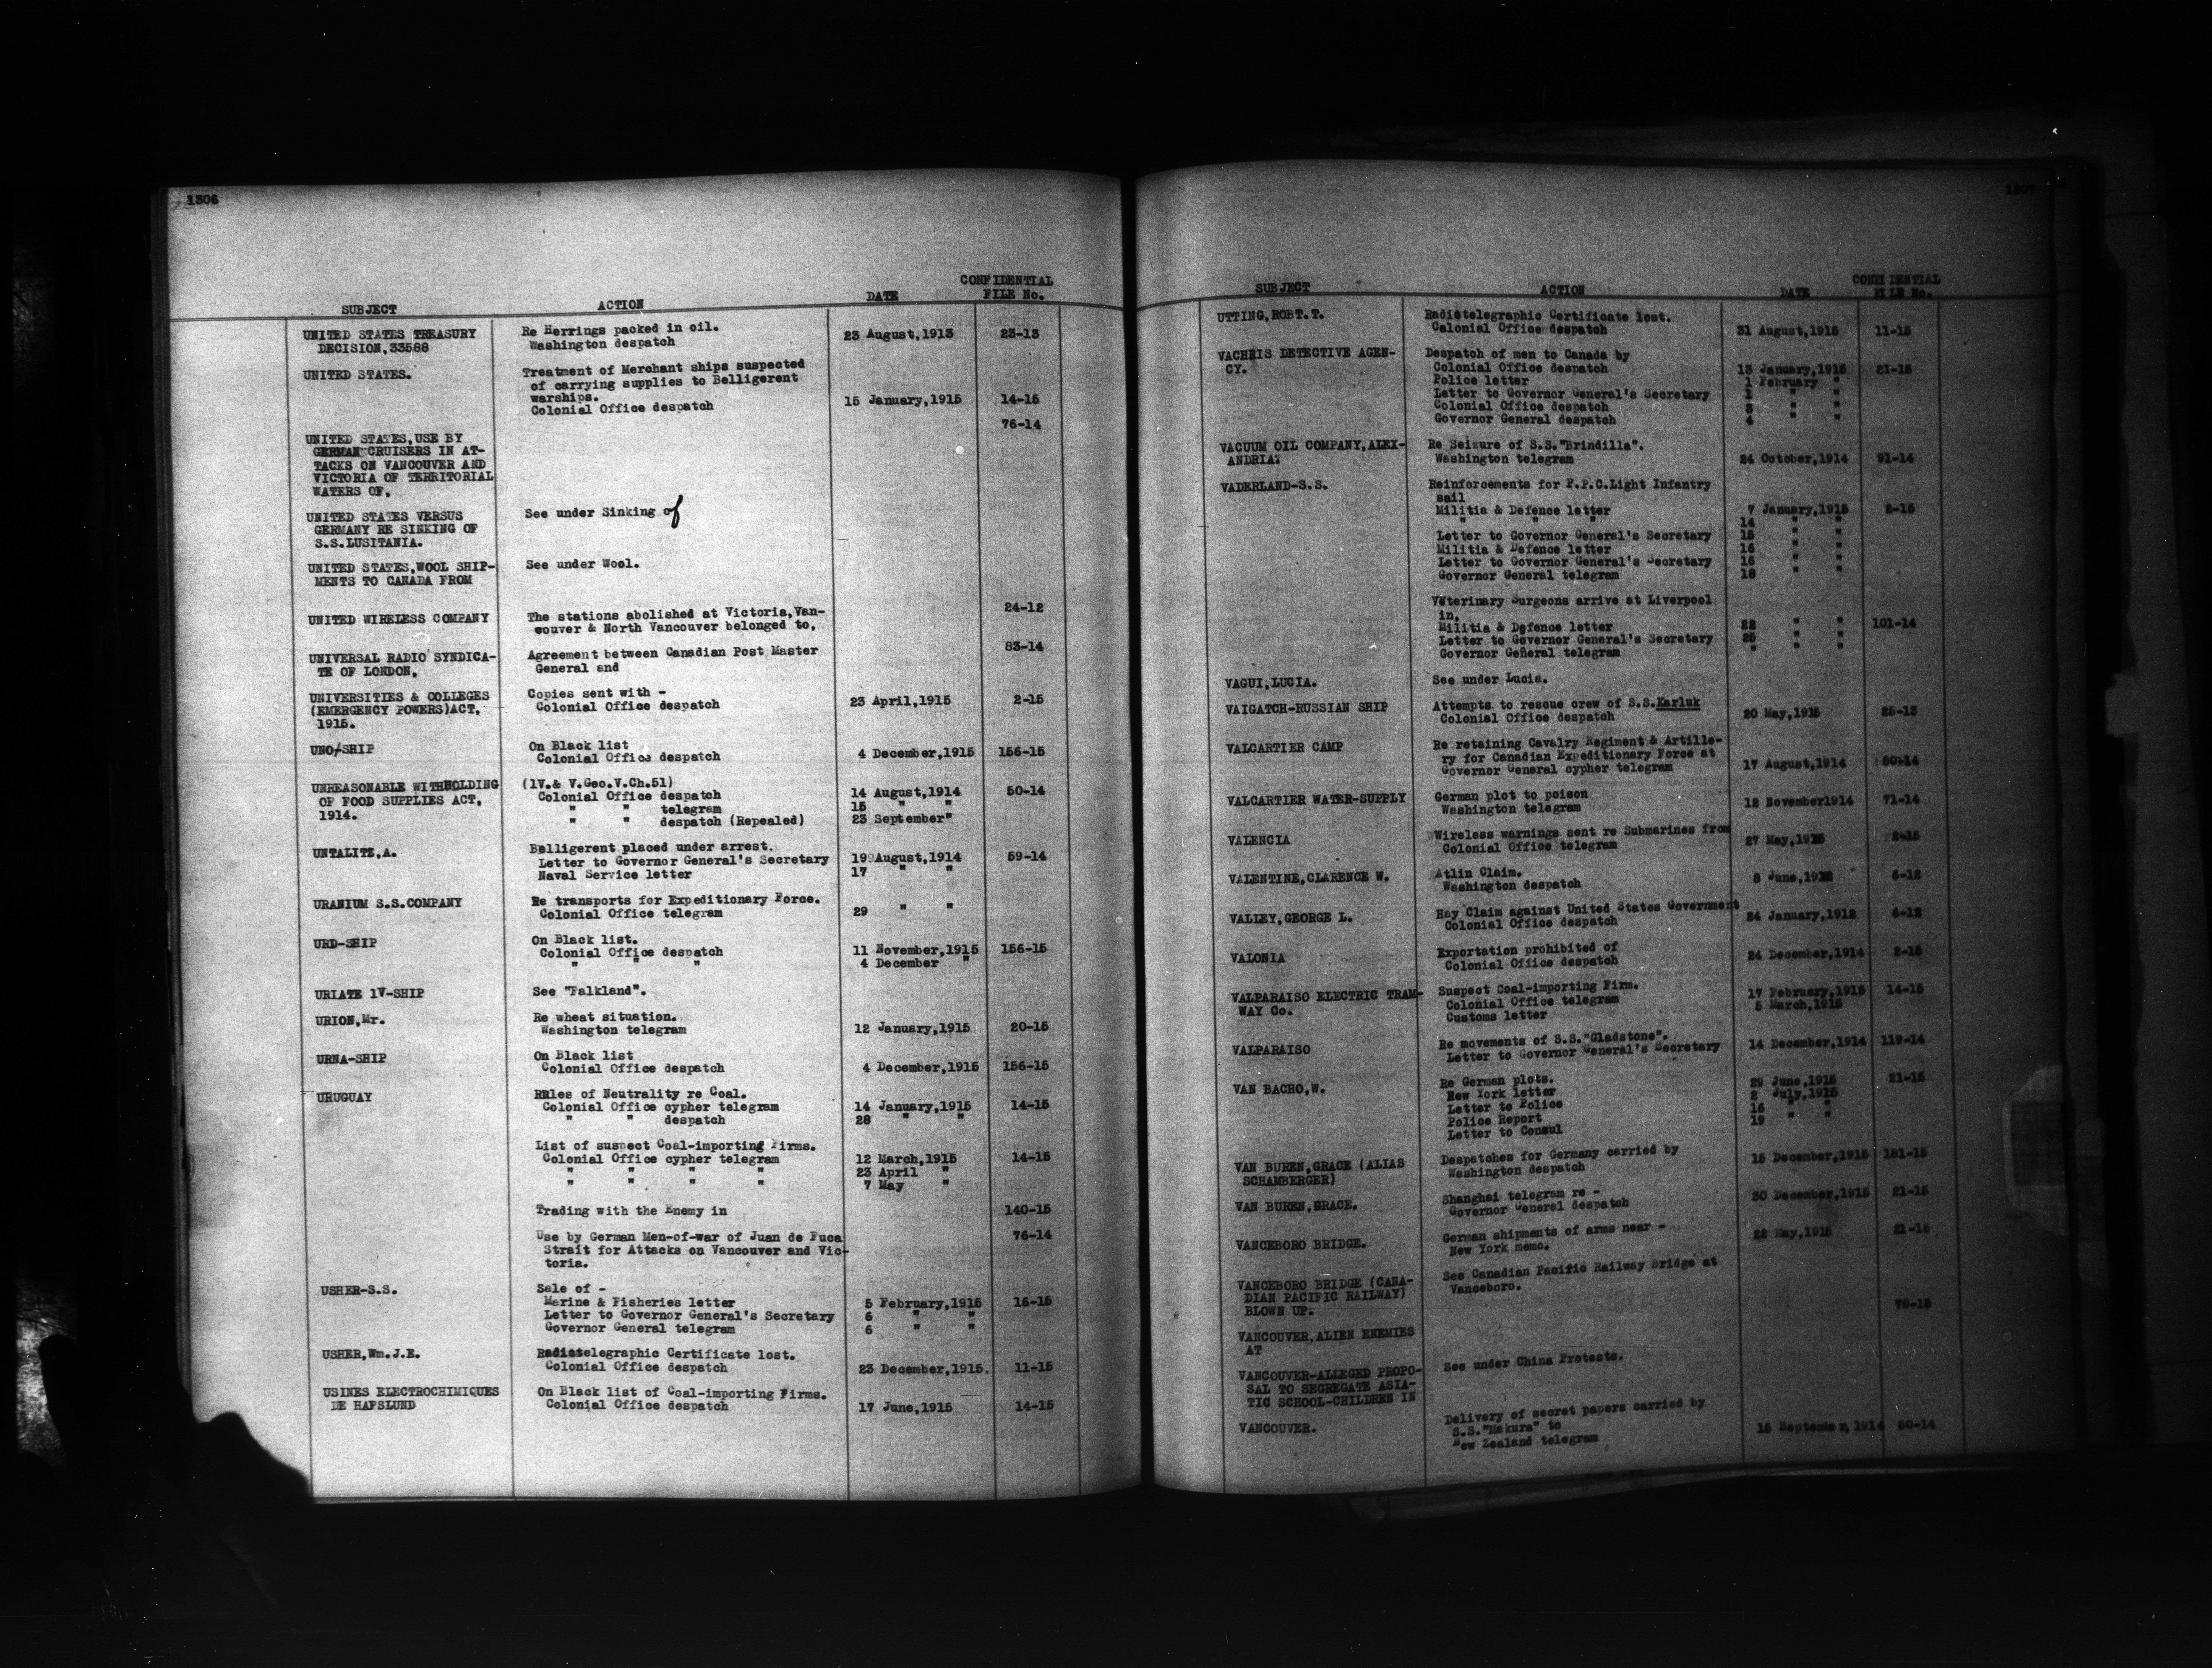 1306
SUBJECT ACTION DATE CONFIDENTIAL FILE No.
UNITED STATES TREASURY Re Herrings packed in oil.
DECISION,33588 Washington despatch 23 August,1913 23-13
UNITED STATES. Treatment of Merchant ships suspected
of carrying supplies to Belligerent
warships.
Colonial Office despatch 15 January,1915 14-15
76-14
UNITED STATES,USE BY
GERMAN CRUISERS IN AT-
TACKS ON VANCOUVER AND
VICTORIA OF TERRITORIAL
WATERS OF,
UNITED STATES VERSUS See under Sinking of
GERMANY RE SINKING OF
S.S.LUSITANIA.
UNITED STATES,WOOL SHIP- See under Wool.
MENTS TO CANADA FROM
UNITED WIRELESS COMPANY The stations abolished at Victoria,Van- 24-12
couver & North Vancouver belonged to,
UNIVERSAL RADIO SYNDICA- Agreement between Canadian Post Master 83-14
TE OF LONDON, General and
UNIVERSITIES & COLLEGES Copies sent with -
(EMERGENCY POWERS)ACT, Colonial Office despatch 23 April,1915 2-15
1915.
UNO-SHIP On Black list
Colonial Office despatch 4 December,1915 156-15
UNREASONABLE WITHHOLDING (1V.& V.Geo.V.Ch.51)
OF FOOD SUPPLIES ACT, Colonial Office despatch 14 August,1914 50-14
1914. " " telegram 15 " "
" " despatch (Repealed) 23 September"
UNTALITZ,A. Belligerent placed under arrest.
Letter to Governor General's Secretary 19 August,1914 59-14
Naval Service letter 17 " "
URANIUM S.S.COMPANY Re transports for Expeditionary Force.
Colonial Office telegram 29 " "
URD-SHIP On Black list.
Colonial Office despatch 11 November,1915 156-15
" " " 4 December "
URIATE 1V-SHIP See "Falkland".
URION,Mr. Re wheat situation.
Washington telegram 12 January,1915 20-15
URNA-SHIP On Black list
Colonial Office despatch 4 December,1915 156-15
URUGUAY Rules of Neutrality re Coal.
Colonial Office cypher telegram 14 January,1915 14-15
" " despatch 28 " "
List of suspect Coal-importing Firms.
Colonial Office cypher telegram 12 March,1915 14-15
" " " " 23 April "
" " " " 7 May "
Trading with the Enemy in 140-15
Use by German Men-of-war of Juan de Fuca 76-14
Strait for Attacks on Vancouver and Vic-
toria.
USHER-S.S. Sale of -
Marine & Fisheries letter 5 February,1915 15-15
Letter to Governor General's Secretary 6 " "
Governor General telegram 6 " "
USHER,Wm.J.E. Radiotelegraphic Certificate lost.
Colonial Office despatch 23 December,1915. 11-15
USINES ELECTROCHIMIQUES On Black list of Coal-importing Firms.
DE HAFSLUND Colonial Office despatch 17 June,1915 14-15
1307
SUBJECT ACTION DATE CONFIDENTIAL FILE No.
UTTING,ROBT.T. Radiotelegraphic Certificate lost.
Colonial Office despatch 31 August,1915 11-15
VACHRIS DETECTIVE AGEN- Despatch of men to Canada by
CY. Colonial Office despatch 13 January,1915 21-15
Police letter 1 February "
Letter to Governor General's Secretary 1 " "
Colonial Office despatch 3 " "
Governor General despatch 4 " "
VACUUM OIL COMPANY,ALEX- Re Seizure of S.S."Brindilla".
ANDRIA. Washington telegram 24 October,1914 91-14
VADERLAND-S.S. Reinforcements for P.P.C.Light Infantry
sail
Militia & Defence letter 7 January,1915 2-15
" " " 14 " "
Letter to Governor General's Secretary 15 " "
Militia & Defence letter 16 " "
Letter to Governor General's Secretary 16 " "
Governor General telegram 18 " "
Veterinary Surgeons arrive at Liverpool
in,
Militia & Defence letter 22 " " 101-14
Letter to Governor General's Secretary 25 " "
Governor General telegram " " "
VAGUI,LUCIA. See under Lucia.
VAIGATCH-RUSSIAN SHIP Attempts to rescue crew of S.S.Karluk
Colonial Office despatch 20 May,1915 25-13
VALCARTIER CAMP Re retaining Cavalry Regiment & Artille-
ry for Canadian Expeditionary Force at
Governor General cypher telegram 17 August,1914 50-14
VALCARTIER WATER-SUPPLY German plot to poison
Washington telegram 12 November1914 71-14
VALENCIA Wireless warnings sent re Submarines from
Colonial Office telegram 27 May,1915 2-15
VALENTINE,CLARENCE W. Atlin Claim.
Washington despatch 8 June,1912 6-12
VALLEY,GEORGE L. Hay Claim against United States Government
Colonial Office despatch 24 January,1912 6-12
VALONIA Exportation prohibited of
Colonial Office despatch 24 December,1914 2-15
VALPARAISO ELECTRIC TRAM- Suspect Coal-importing Firm.
WAY Co. Colonial Office telegram 17 February,1915 14-15
Customs letter 5 March,1915
VALPARAISO Re movements of S.S."Gladstone".
Letter to Governor General's Secretary 14 December,1914 119-14
VAN BACHO,W. Re German plots.
New York letter 29 June,1915 21-15
Letter to Police 2 July,1915
Police Report 16 " "
Letter to Consul 19 " "
VAN BUREN,GRACE (ALIAS Despatches for Germany carried by
SCHAMBERGER) Washington despatch 15 December,1915 181-15
VAN BUREN,GRACE. Shanghai telegram re -
Governor General despatch 30 December,1915 21-15
VANCEBORO BRIDGE. German shipments of arms near -
New York memo. 22 May,1915 21-15
VANCEBORO BRIDGE (CANA- See Canadian Pacific Railway Bridge at
DIAN PACIFIC RAILWAY) Vanceboro.
BLOWN UP.
VANCOUVER,ALIEN ENEMIES
AT
VANCOUVER-ALLEGED PROPO- See under China Protests.
SAL TO SEGREGATE ASIA-
TIC SCHOOL-CHILDREN IN
VANCOUVER. Delivery of secret papers carried by
S.S."Makura" to
New Zealand telegram 15 September,1914 50-14